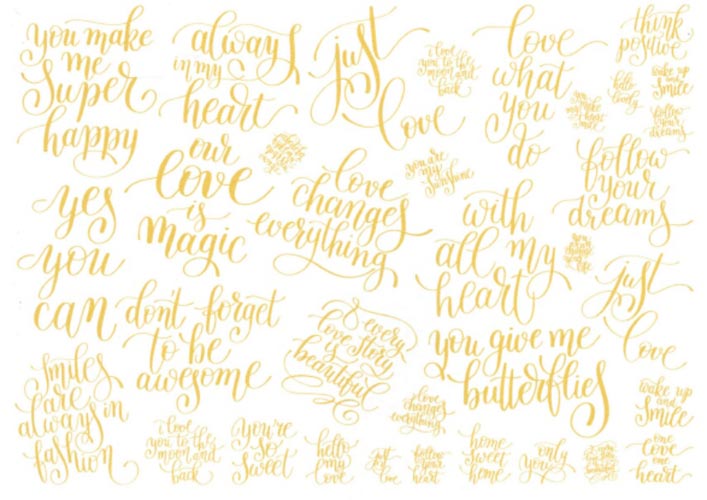 you make
me
super
happy
always
in my
heart
just
love
i love
you to the
moon and
back
love
what
you
do
think
positive
hello
lovely
wake up
and
smile
follow
your
dreams
you
make
me
smile
our
love
is
magic
love
changes
everything
you are
my
sunshine
with
all my
heart
follow
your
dreams
yes
you
can
don't forget
to be
awesome
every
love story
is
beautiful
you give me
butterflies
just
love
smiles
are
always in
fashion
i love
you to the
moon and
back
you're
so
sweet
hello
my
love
just
love
love
changes
everything
follow
your
heart
home
sweet
home
only
you
wake up
and
smile
one
love
one
heart